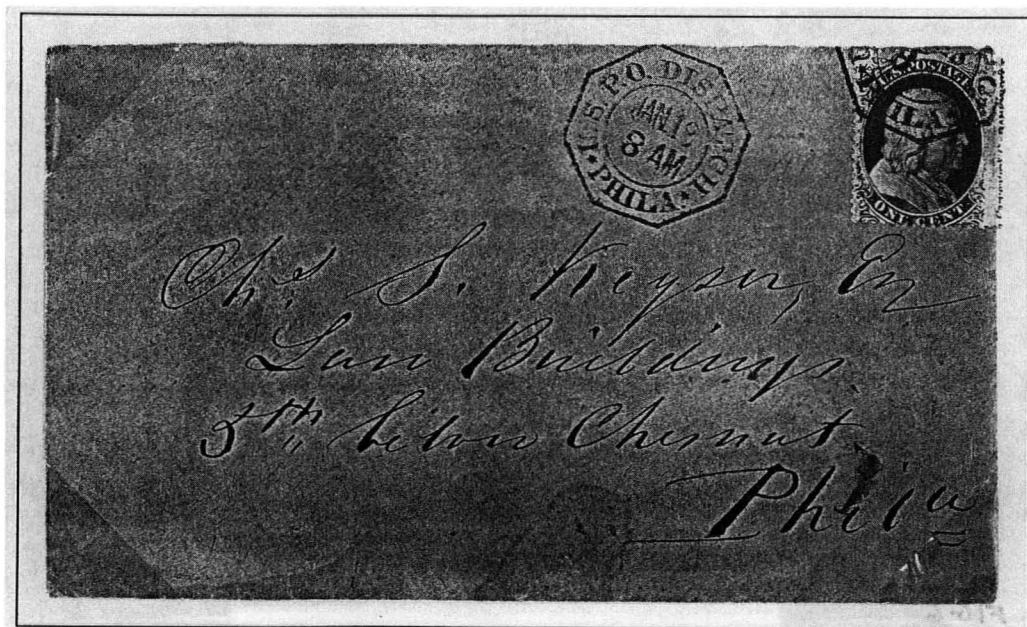 U.S.P.O. DISPATCH
JAN. 19
8 AM
PHILA.
U.S. POSTAGE
ILA
ONE CENT
Chs. S. Keyser, Esq
Law Buildings
5th below Chesnut
Phila